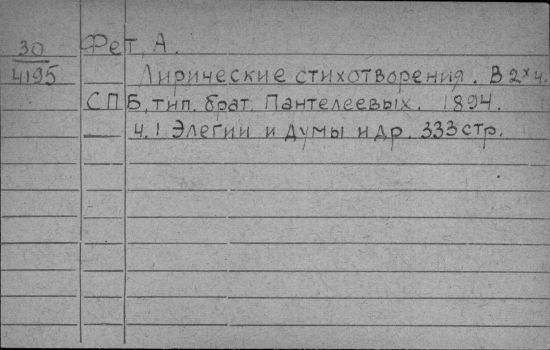 30 Фет, А.
4195 Лирические стихотворения. В 2х ч.
СПБ, тип. брат. Пантелеевых. 1894.
Ч. 1 Элегии и думы и др. 333 стр.